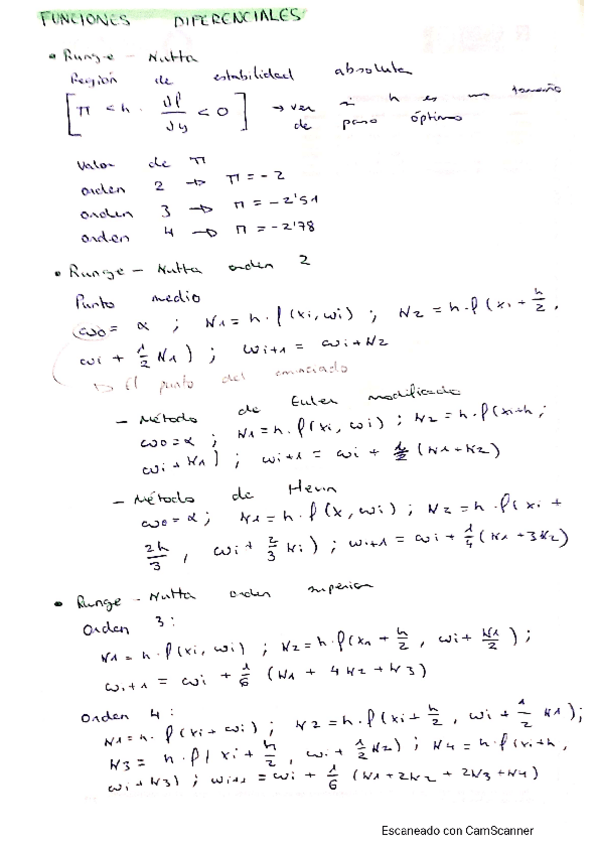 FUNCIONES DIFERENCIALES
• Runge - Kutta
Región de estabilidad absoluta
[π < h · ∂f/∂y < 0] → ver si h es un tamaño
de paso óptimo
Valor de π
orden 2 → π = -2
orden 3 → π = -2'51
orden 4 → π = -2'78
• Runge - Kutta orden 2
Punto medio
ω0 = α ; K1 = h · f(xi, ωi) ; K2 = h · f(xi + h/2,
ωi + 1/2 K1) ; ωi+1 = ωi + K2
↳ El punto del enunciado
- Método de Euler modificado
ω0 = α ; K1 = h · f(xi, ωi) ; K2 = h · f(xi+h ;
ωi + K1) ; ωi+1 = ωi + 1/2 (K1 + K2)
- Método de Heun
ω0 = α ; K1 = h · f(x, ωi) ; K2 = h · f(xi +
2h/3, ωi + 2/3 Ki) ; ωi+1 = ωi + 1/4 (K1 + 3K2)
• Runge - Kutta orden superior
Orden 3 :
K1 = h · f(xi, ωi) ; K2 = h · f(xn + h/2, ωi + K1/2) ;
ωi+1 = ωi + 1/6 (K1 + 4K2 + K3)
Orden 4 :
K1 = h · f(xi + ωi) ; K2 = h · f(xi + h/2, ωi + 1/2 K1) ;
K3 = h · f(xi + h/2, ωi + 1/2 K2) ; K4 = h · f(xi + h,
ωi + K3) ; ωi+1 = ωi + 1/6 (K1 + 2K2 + 2K3 + K4)
Escaneado con CamScanner